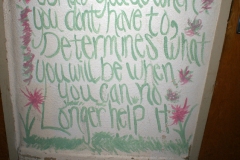 you don't have to,
Determines what
you will be when
you can no
Longer help it